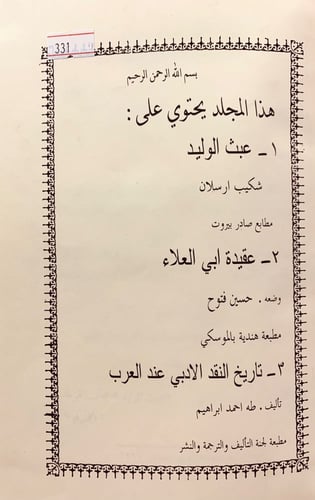 331
بسم الله الرحمن الرحيم
هذا المجلد يحتوي على :
١ - عبث الوليد
شكيب ارسلان
مطابع صادر بيروت
٢ - عقيدة ابي العلاء
وضعه . حسين فتوح
مطبعة هندية بالموسكي
٣ - تاريخ النقد الادبي عند العرب
تأليف . طه احمد ابراهيم
مطبعة لجنة التأليف والترجمة والنشر